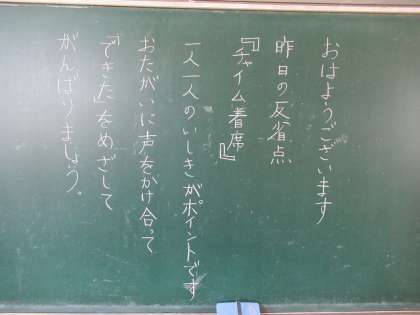 おはようございます
昨日の反省点
『チャイム着席』
一人一人のいしきがポイントです
おたがいに声をかけ合って
「できた」をめざして
がんばりましょう。